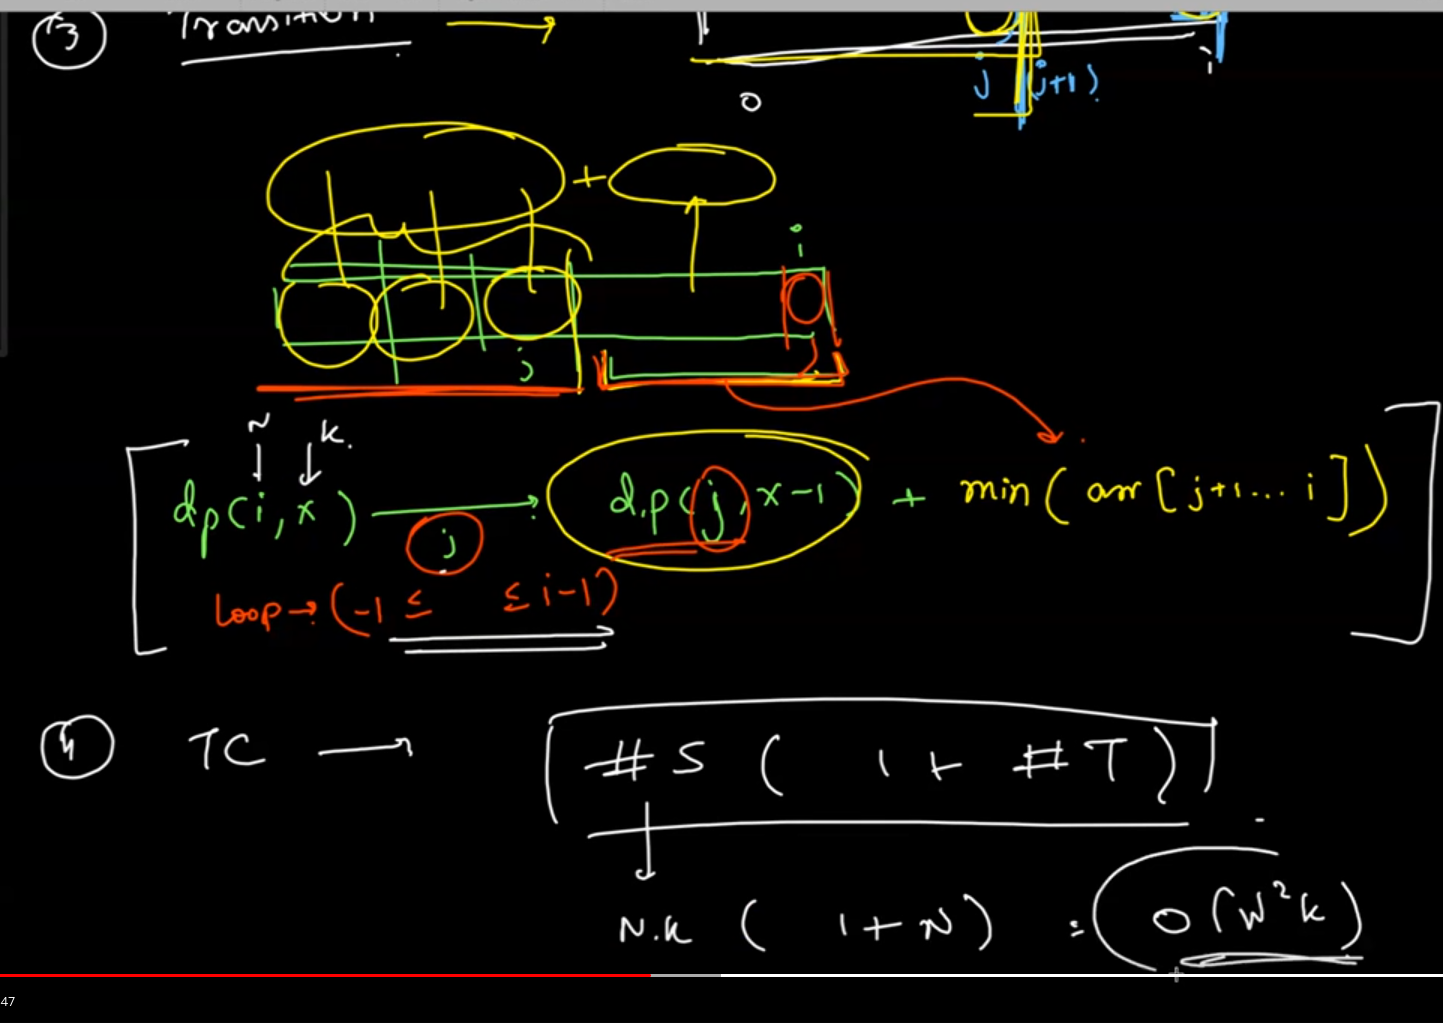 3 Transition →
j (j+1) i
0
+
i
j
N K.
dp(i, x) → dp(j, x-1) + min(arr[j+1... i])
j
Loop → (-1 ≤ ≤ i-1)
4 TC → #S ( 1 + #T )
N.K ( 1 + N ) = O(N²K)
47